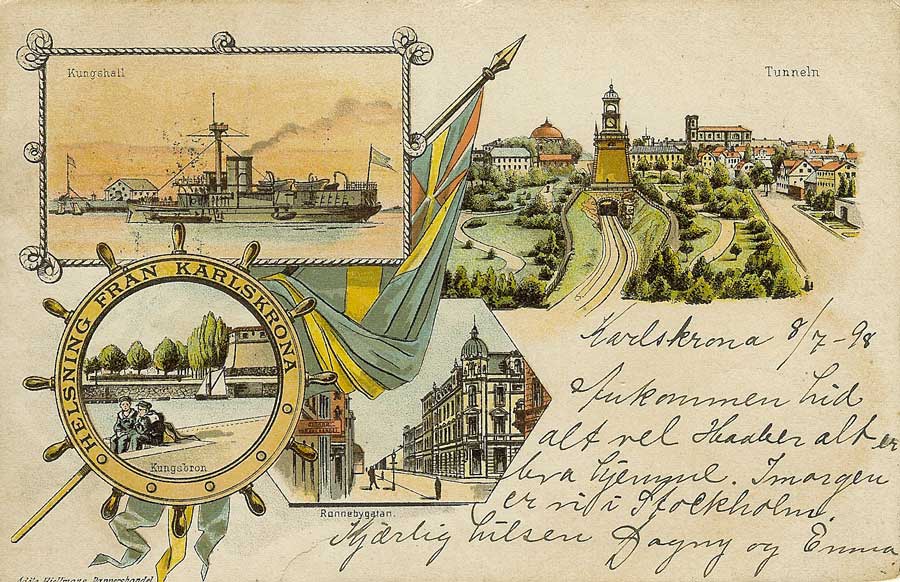 Kungshall
Tunneln
HELSNING FRÅN KARLSKRONA
Kungsbron
Ronnebygatan.
Karlskrona 8/7-98
Ankommen hid
alt vel Haaber alt er
bra hjemme. Imorgen
er vi i Stockholm.
Kjærlig hilsen Dagny og Emma
Pappershandel